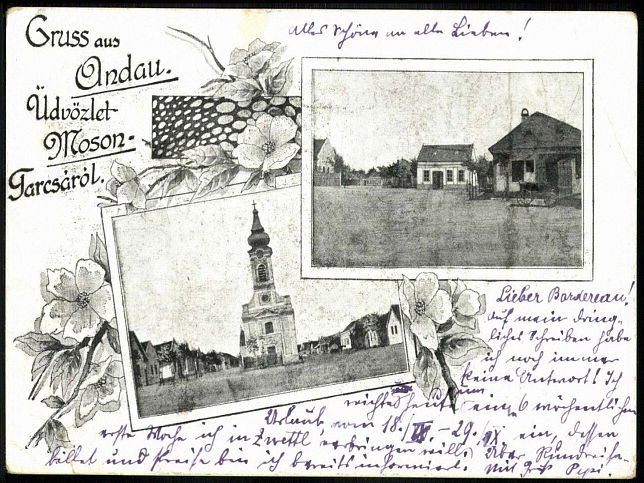 Gruss aus
Andau.
Üdvözlet
Moson-
Tarcsáról.
Alles Schöne an alle Lieben!
Lieber Bordereau!
Auf mein dring-
liches Schreiben habe
ich noch immer
keine Antwort! Ich
heute um eine 6 wöchentlichen
Urlaub vom 18./ - 29./IX ein, dessen
erste Woche ich in Zwettl verbringen will. Über Rundreise-
billet und Preise bin ich bereits informiert. Mit Gruß Pepi.